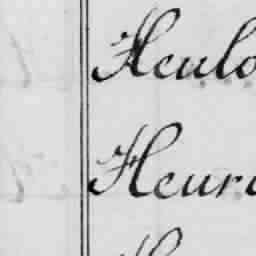 Heulo
Heuri